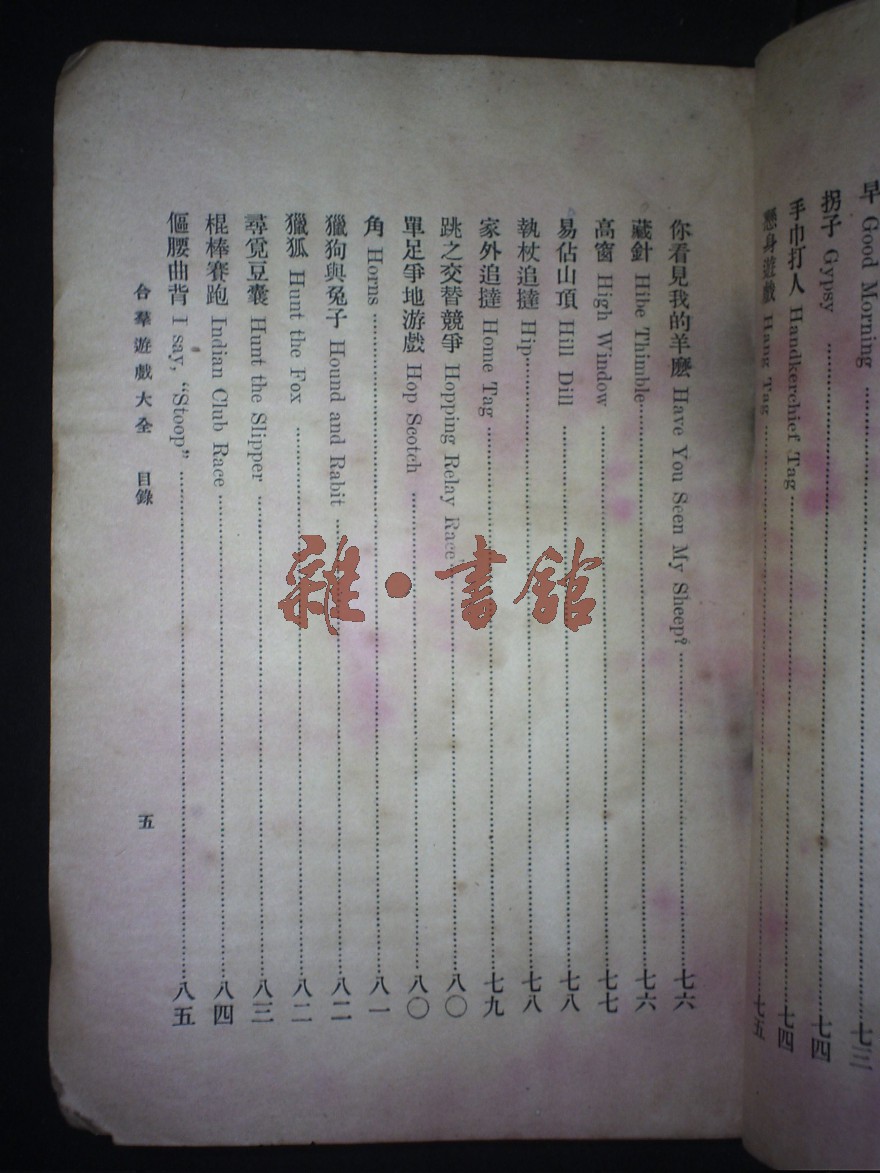 早 Good Morning ……七三
拐子 Gypsy ……七四
手巾打人 Handkerchief Tag ……七四
懸身遊戲 Hang Tag ……七五
你看見我的羊麽 Have You Seen My Sheep? ……七六
藏針 Hibe Thimble ……七六
高窗 High Window ……七七
易佔山頂 Hill Dill ……七八
執杖追撻 Hip ……七八
家外追撻 Home Tag ……七九
跳之交替競爭 Hopping Relay Race ……八〇
單足爭地游戲 Hop Scotch ……八〇
角 Horns ……八一
獵狗與兔子 Hound and Rabit ……八二
獵狐 Hunt the Fox ……八二
尋覓豆囊 Hunt the Slipper ……八三
棍棒賽跑 Indian Club Race ……八四
傴腰曲背 I say, "Stoop" ……八五
合羣遊戲大全 目錄 五
雜·書館